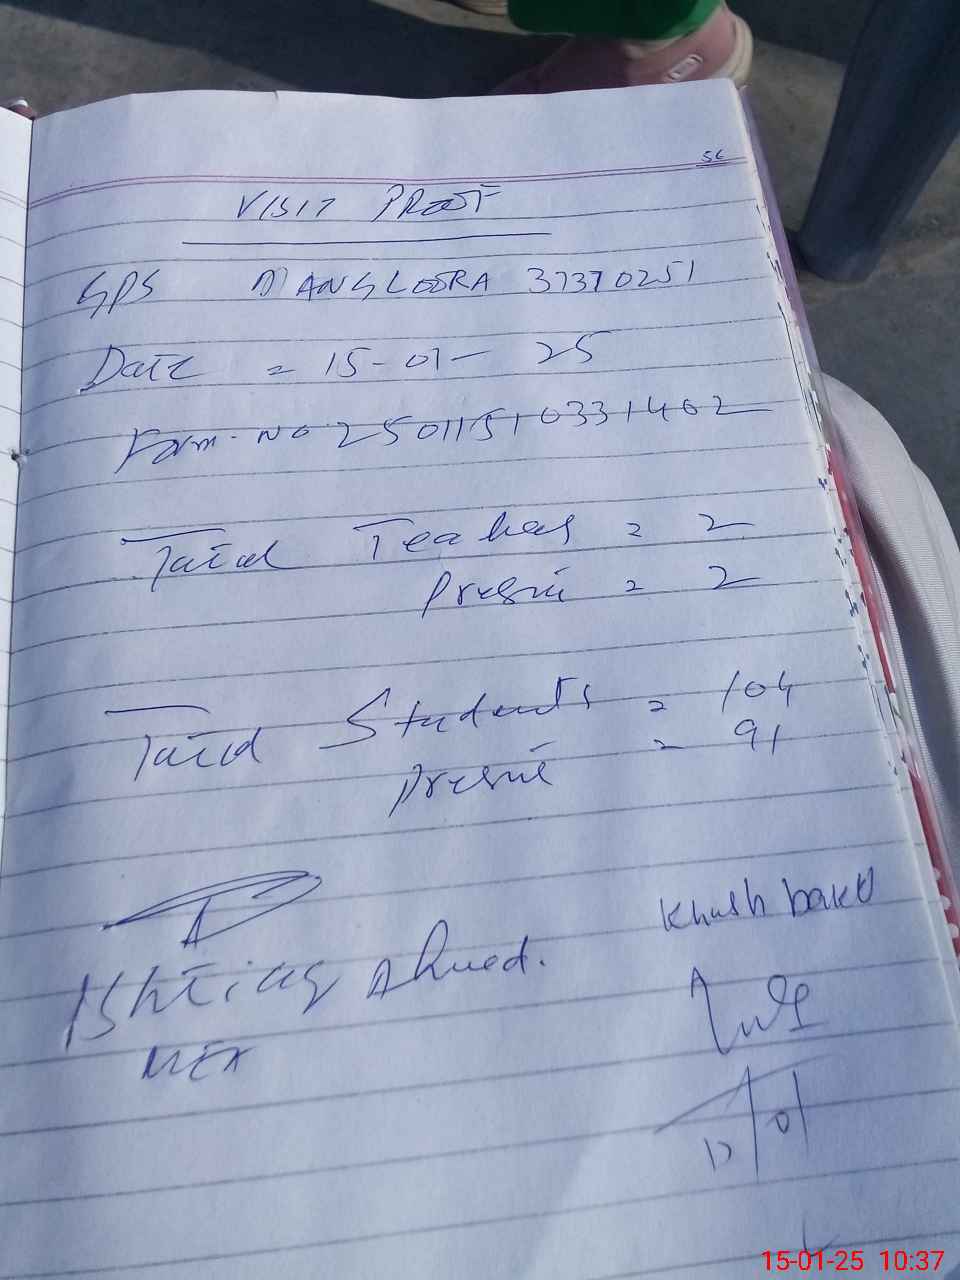 56
VISIT PROOF
GPS MANGLOORA 37370251
Date = 15-01-25
Form. No 25011510331402
Total Teachers = 2
Present = 2
Total Students = 104
Present = 91
Ishtiaq Ahmed. Khush bakht
MEA
15-01-25 10:37